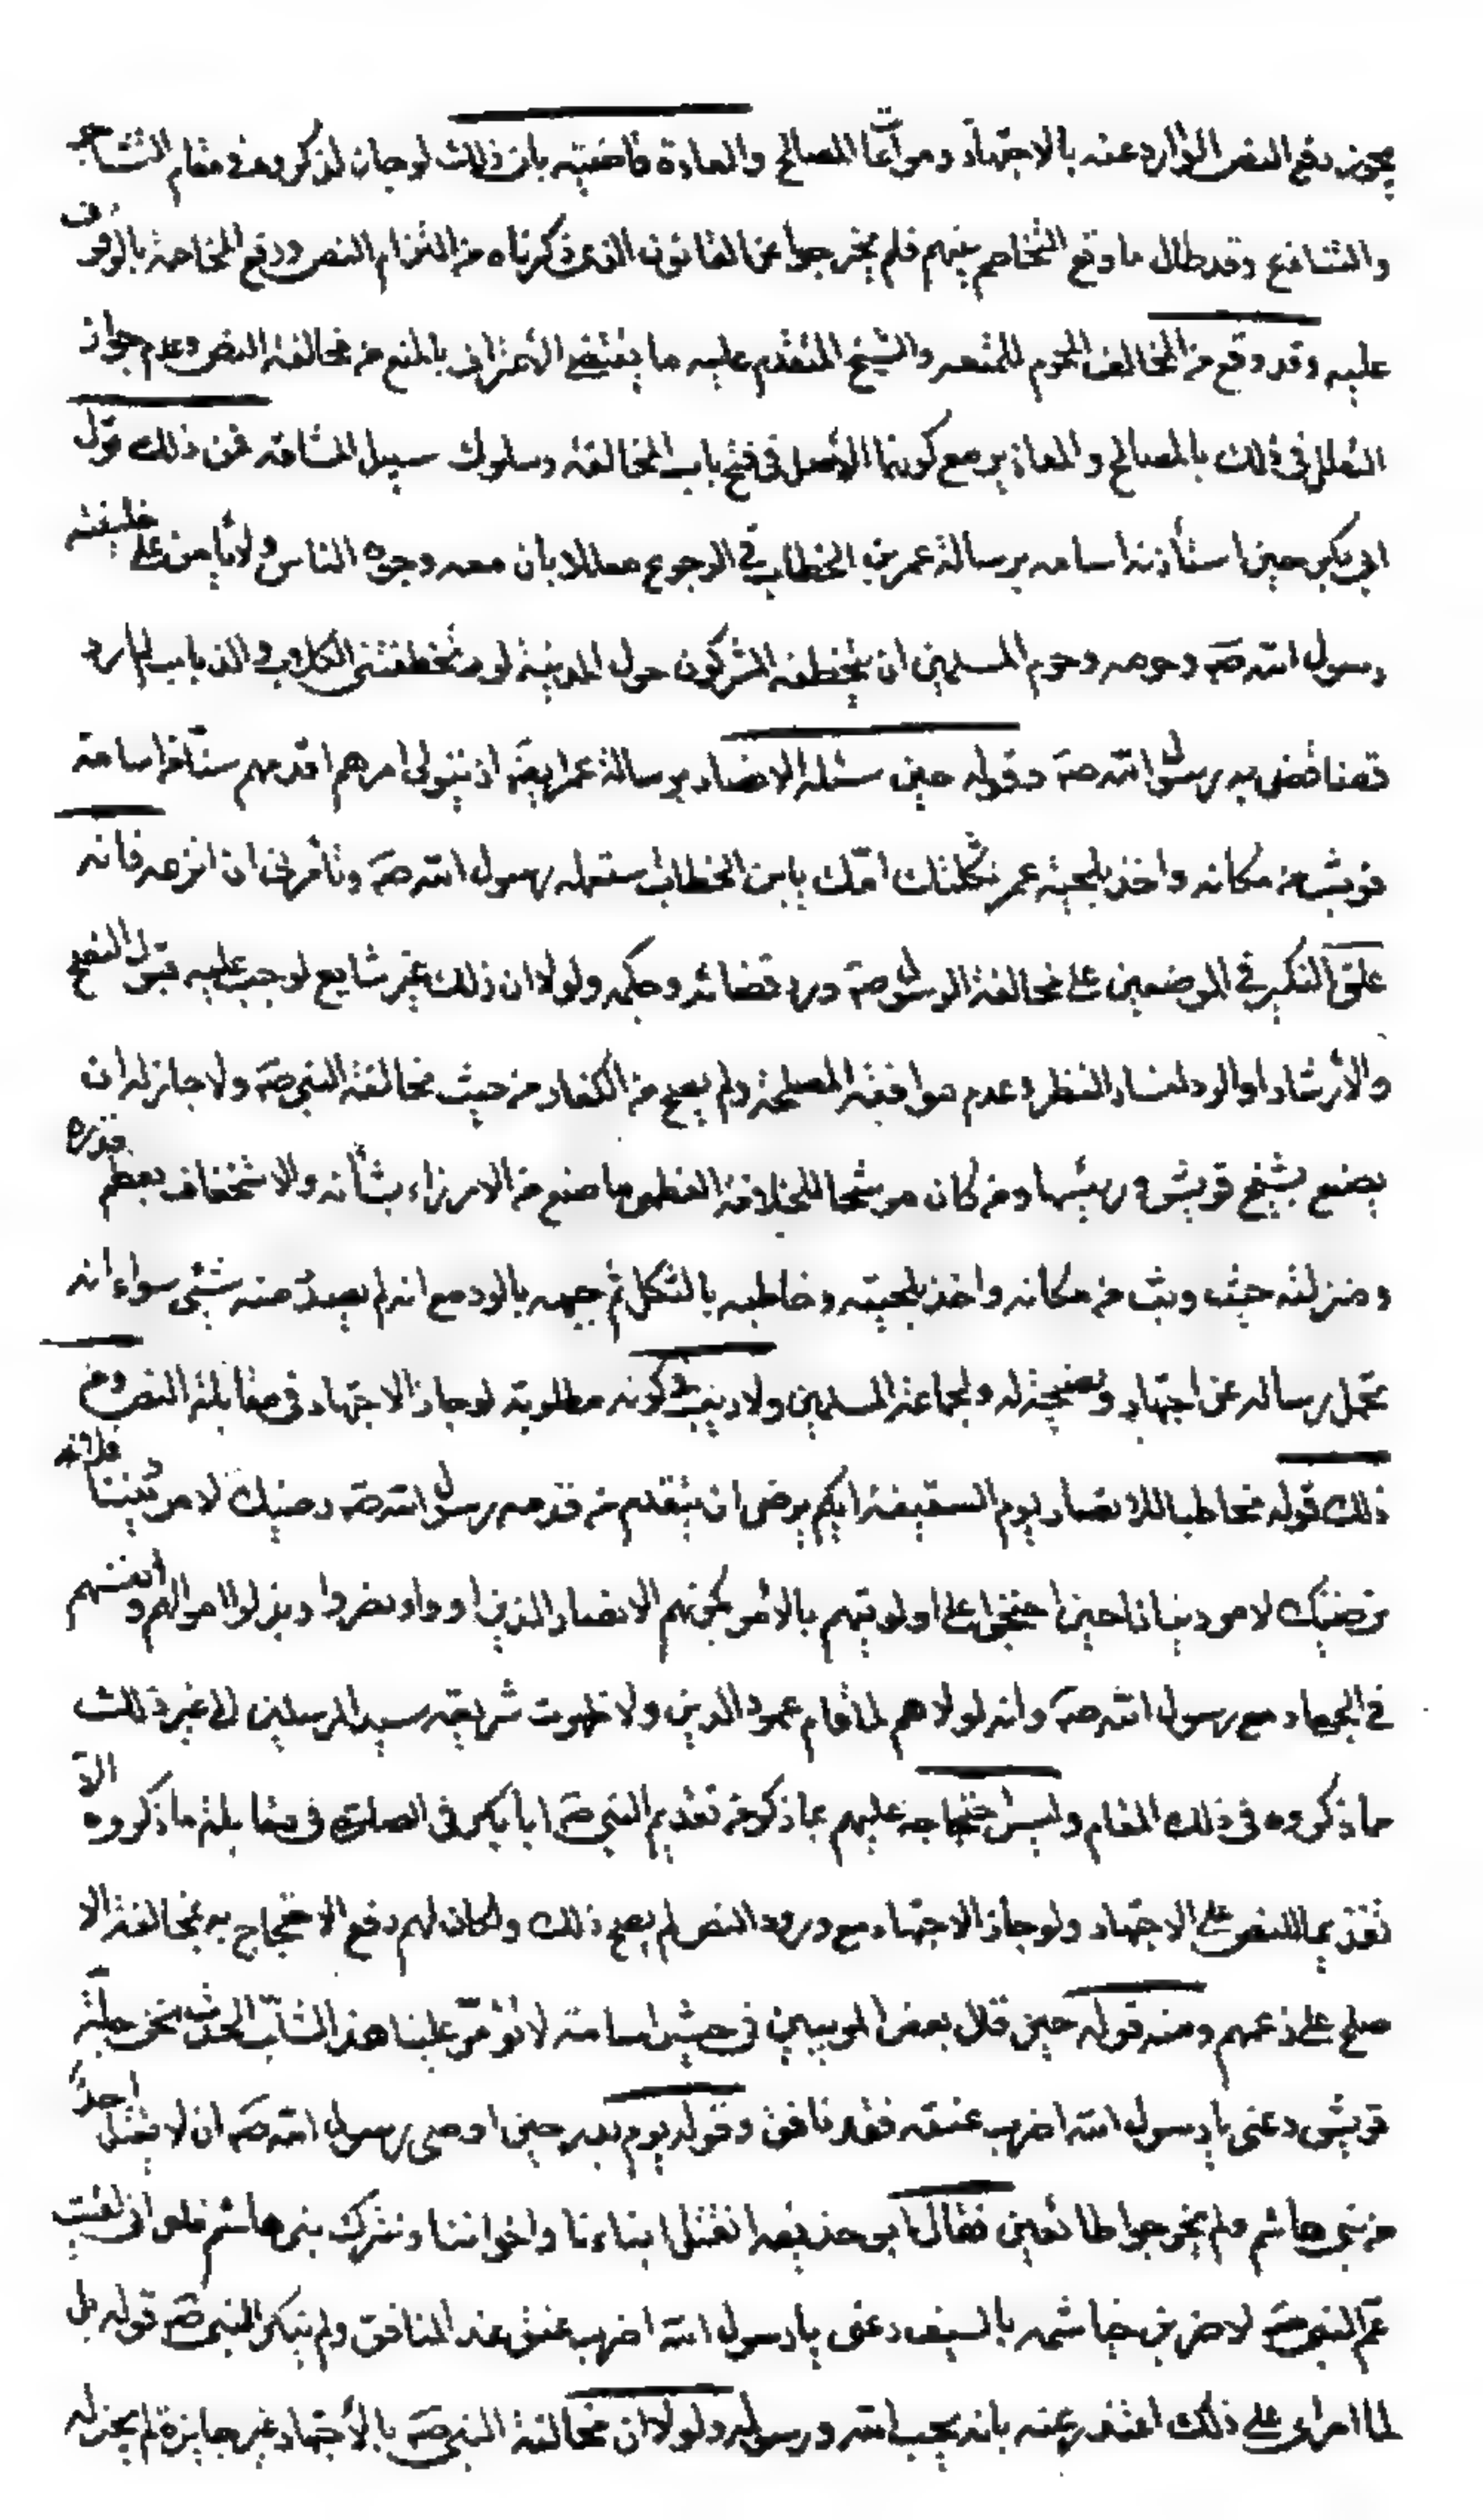 يجوز دفع النص الوارد عنه بالاجتهاد ومراعاة المصالح والعادة قاضيته بان ذلك لو جاز لذكروه في مقام التشاجر
والتنازع وقد طال ما وقع التخاصم بينهم فلم يخرجوا عن القانون الذي ذكرناه من التزام النص ودفع المخاصمة بالوقوف
عليه وقد وقع من المخالف المحرم للمتعه والشيخ المتقدم عليه ما يقتضي الاعتراف بالمنع من مخالفة النص وعدم جواز
التعلل في ذلك بالمصالح والمعاذير مع كونهما الاصل في فتح باب المخالفة وسلوك سبيل المشاقه فمن ذلك قول
ابي بكر حين استأذنه اسامه برسالة عمر بن الخطاب في الرجوع معللا بان معه وجوه الناس ولا يأمن على خليفة
رسول الله صه وحرمه وحرم المسلمين ان يتخطفه المشركون حول المدينة لو تخطفتني الكلاب والذياب لم ارد
قضاء قضى به رسول الله صه وقوله حين سئله الانصار برسالة عمر ايضا ان يتولى امرهم اقدمهم سنا من اسامة
فوثب من مكانه واخذ بلحية عمر ثكلتك امك يابن الخطاب استعمله رسول الله صه وتأمرني ان انزعه فانه
علق النكير في الموضعين على مخالفة الرسول صه ورد قضائه وحكمه ولولا ان ذلك غير شايع لوجب عليه قبول النصح
والارشاد او الرد لفساد النظر وعدم موافقة المصلحة ولم يصح من الكفار من حيث مخالفة النبي صه ولا جاز له ان
يصنع بشيخ قريش ورئيسها ومن كان مرشحا للخلافة العظمى ما صنع من الازراء بشأنه والاستخفاف بعظم قدره
ومنزلته حيث وثب من مكانه واخذ بلحيته وخاطبه بالثكل ثم جبهه بالرد مع انه لم يصدر منه شيئ سواء انه
تحمل رساله عن اجتهاد ونصيحة له ولجماعة المسلمين ولا ريب في كونه مطلوبة لو جاز الاجتهاد في مقابلة النص ومن
ذلك قوله مخاطبا للانصار يوم السقيفة ايكم يرضى ان يتقدم من قدمه رسول الله صه رضيك لامر ديننا فلانه
نرضيك لامر دنيانا حين احتجوا على اولويتهم بالامر بكونهم الانصار الذين اووا ونصروا وبذلوا اموالهم وانفسهم
في الجهاد مع رسول الله صه وانه لولاهم لما قام عمود الدين ولا ظهرت شريعة سيد المرسلين الى غير ذلك
ما ذكروه في ذلك المقام وليس احتجاجه عليهم بما ذكر من تقديم النبي صه ابابكر في الصلوة في مقابلة ما ذكروه الا
تقديما للنص على الاجتهاد ولو جاز الاجتهاد مع ورود النص لم يصح ذلك ولكان لهم دفع الاحتجاج به بمخالفة الا
صلح على زعمهم ومنه قوله حين قال بعض في جيش اسامة لا تؤمر علينا هذا الشاب الحدث نحن جلة
قريش دعني يا رسول الله اضرب عنقه فقد نافق وقوله يوم بدر حين اوصى رسول الله صه ان لا يقتل احد
من بني هاشم ولم يخرجوا طائعين فقال ابو حذيفه انقتل ابناءنا واخواننا ونترك بني هاشم فلو اني لقيت
عم النبي صه لاضربن خياشمه بالسيف دعني يا رسول الله اضرب عنق هذا المنافق ولم ينكر النبي صه قوله بل
لما على ذلك اعتذر عنه بانه يحب الله ورسوله ولولا ان مخالفة النبي صه بالاجتهاد غير جايزة لم يجز له